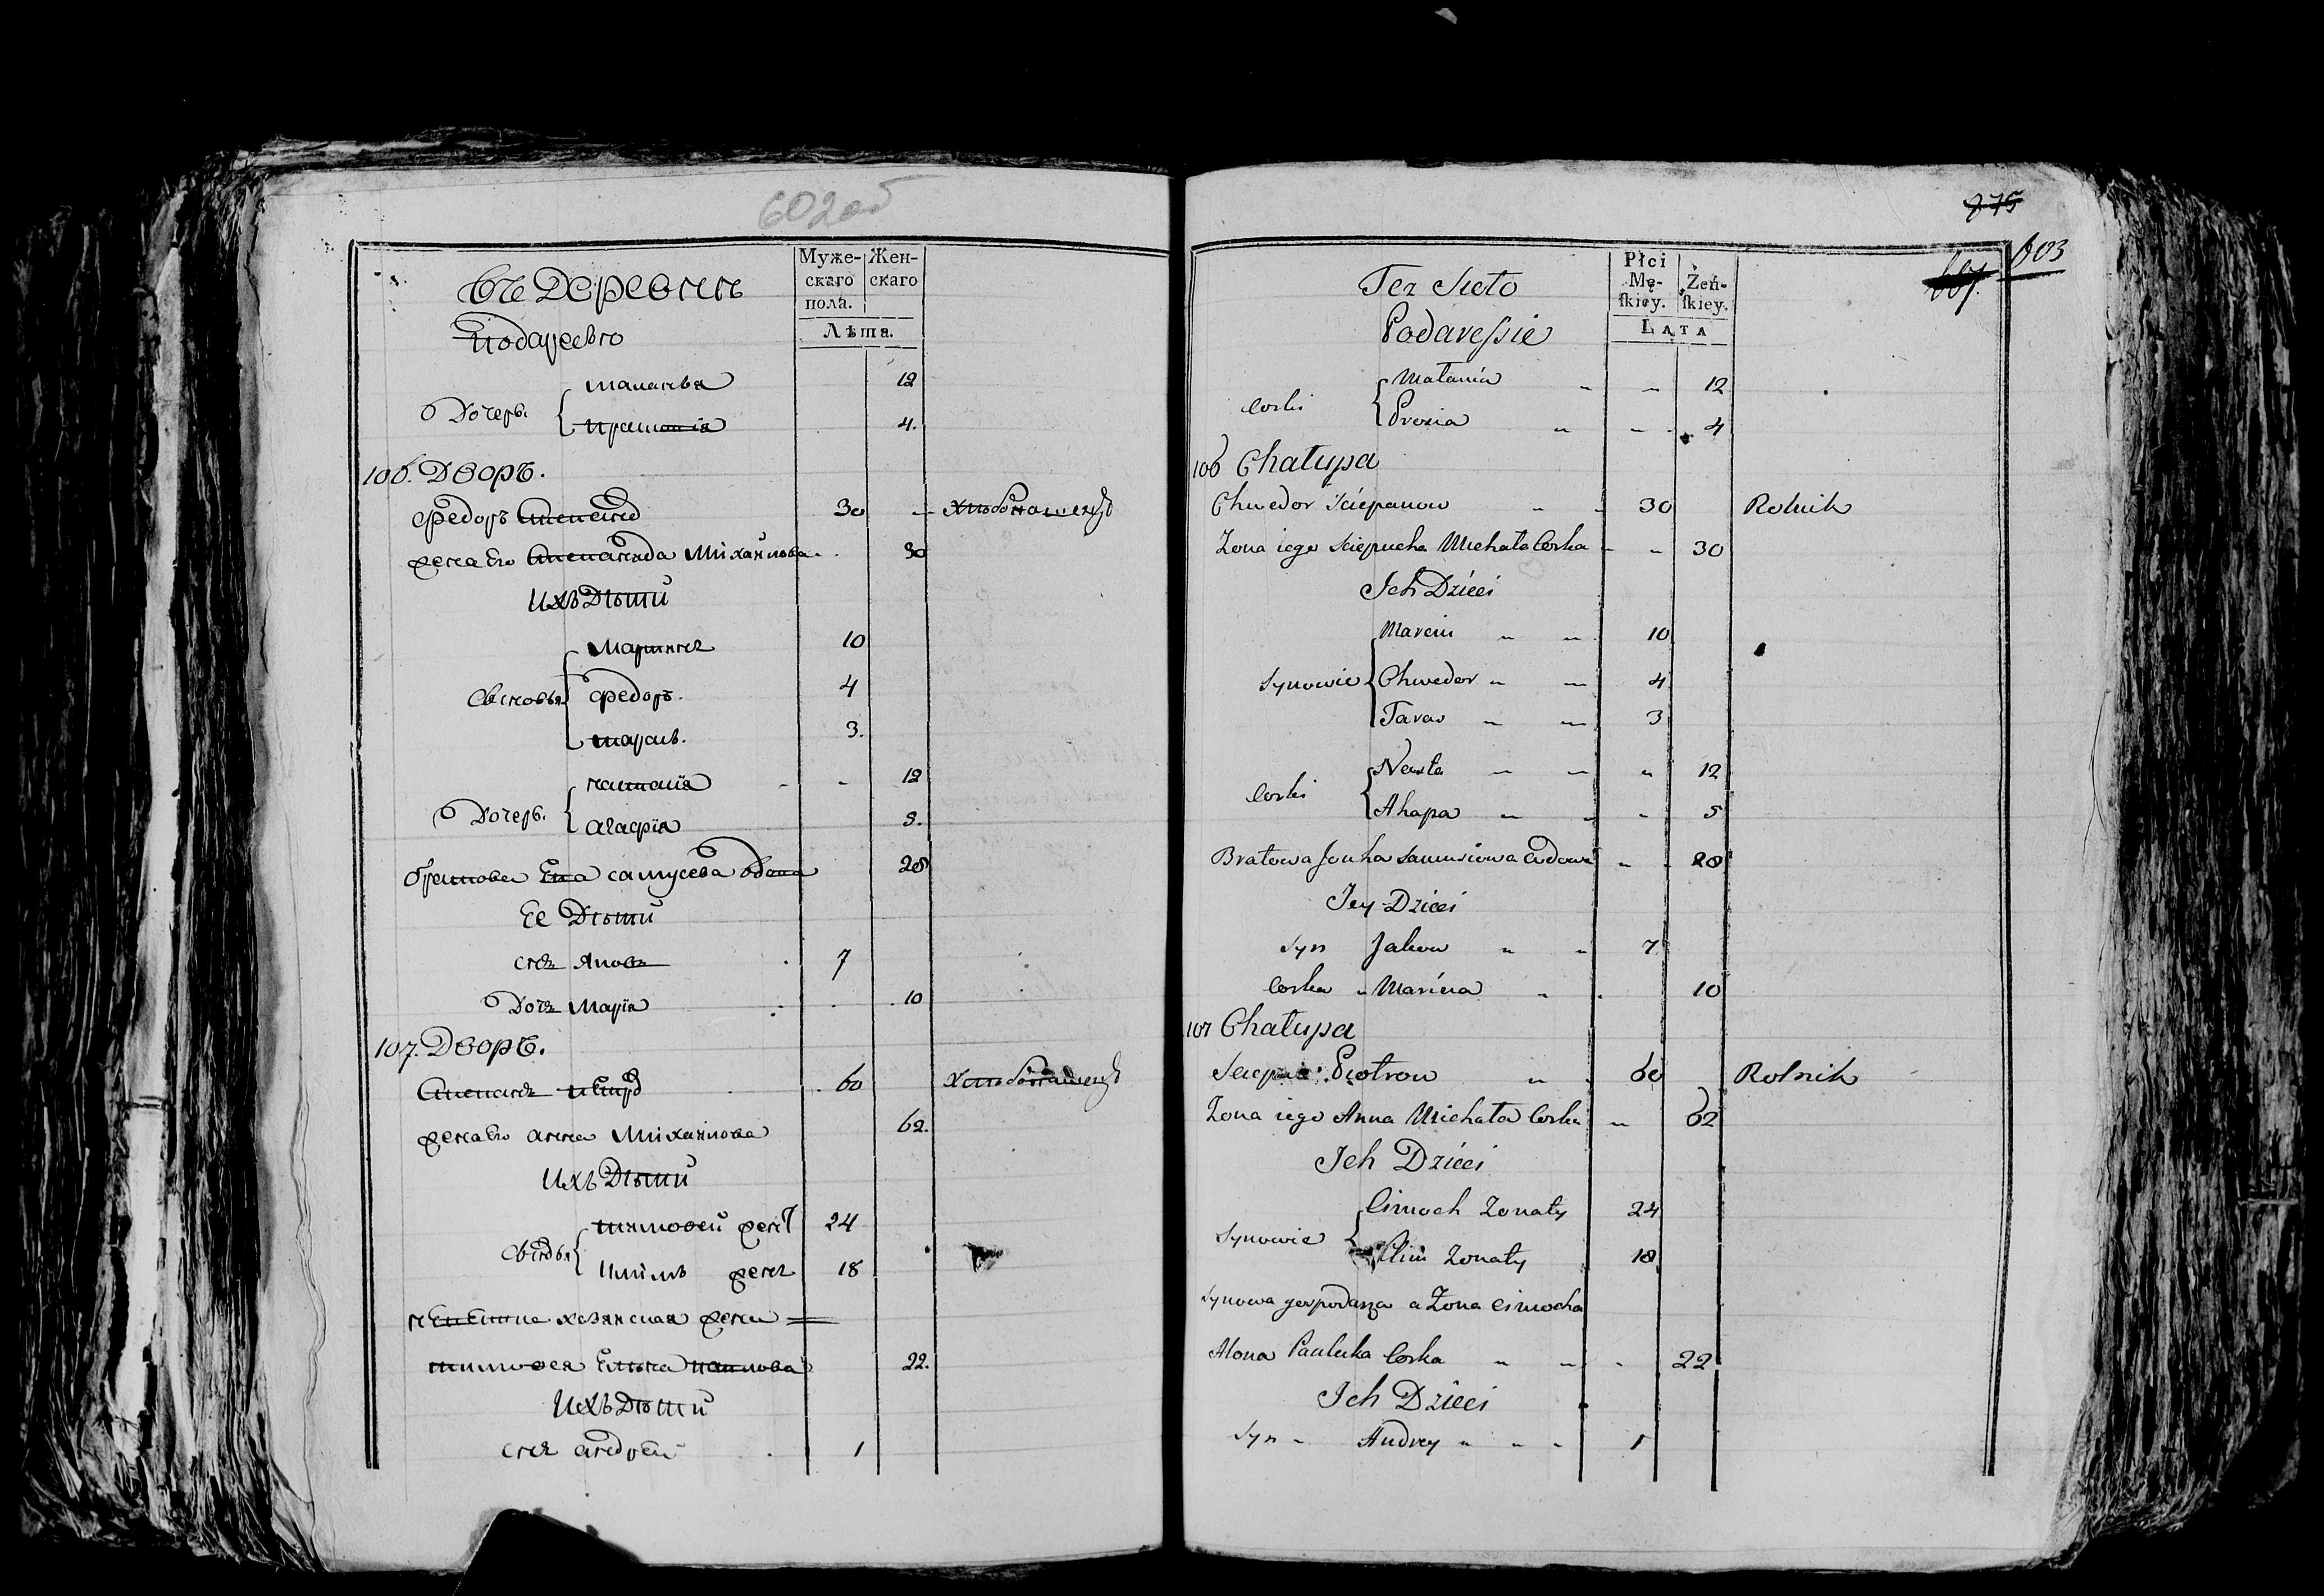 602 об
Въ деревни
Подаревго
Муже-
скаго
пола.
Жен-
скаго
Лѣта.
Дочерь
Маланья 12
Прасковія 4.
106. Дворъ.
Федоръ Степановъ 30 — хлѣбопашецъ
жена Его Степанида Михайлова 30
Ихъ Дѣти
Сыновья
Мартинъ 10
Федоръ. 4
Тарасъ. 3.
Дочерь.
Наталія 12
Агафія 5.
Братова Самусева вдова 28
Ее Дѣти
Сынъ Яковъ 7
Дочь Марія 10
107. Дворъ.
Степанъ Петровъ 60 хлѣбопашецъ
жена Его Анна Михайлова 62.
Ихъ Дѣти
Сыновья
Тимофей женатъ 24
Климъ женатъ 18
хозянская жена
Тимофея Елена Павлова 22.
Ихъ Дѣти
Сынъ Андрей 1
875
667.
603
Tez Sieło
Podaresie
Płci
Mę-
skiey.
Żeń-
skiey.
Lata
Corki
Małania 12
Prosia 4
106 Chałupa
Chwedor Sciepanow 30 Rolnik
Zona iego Sciepucha Michała Corka 30
Ich Dzieci
Synowie
Marcin 10
Chwedor 4
Taras 3
Corki
Nasta 12
Ahapa 5
Bratowa Samusiowa Wdowa 28
Jey Dzieci
Syn Jakow 7
Corka Maryna 10
107 Chałupa
Sciepan Piotrow 60 Rolnik
Zona iego Anna Michała Corka 62
Ich Dzieci
Synowie
Cimoch Zonaty 24
Klim Zonaty 18
Synowa gospodarza a Zona Cimocha
Alona Pauluka Corka 22
Ich Dzieci
Syn Andrey 1